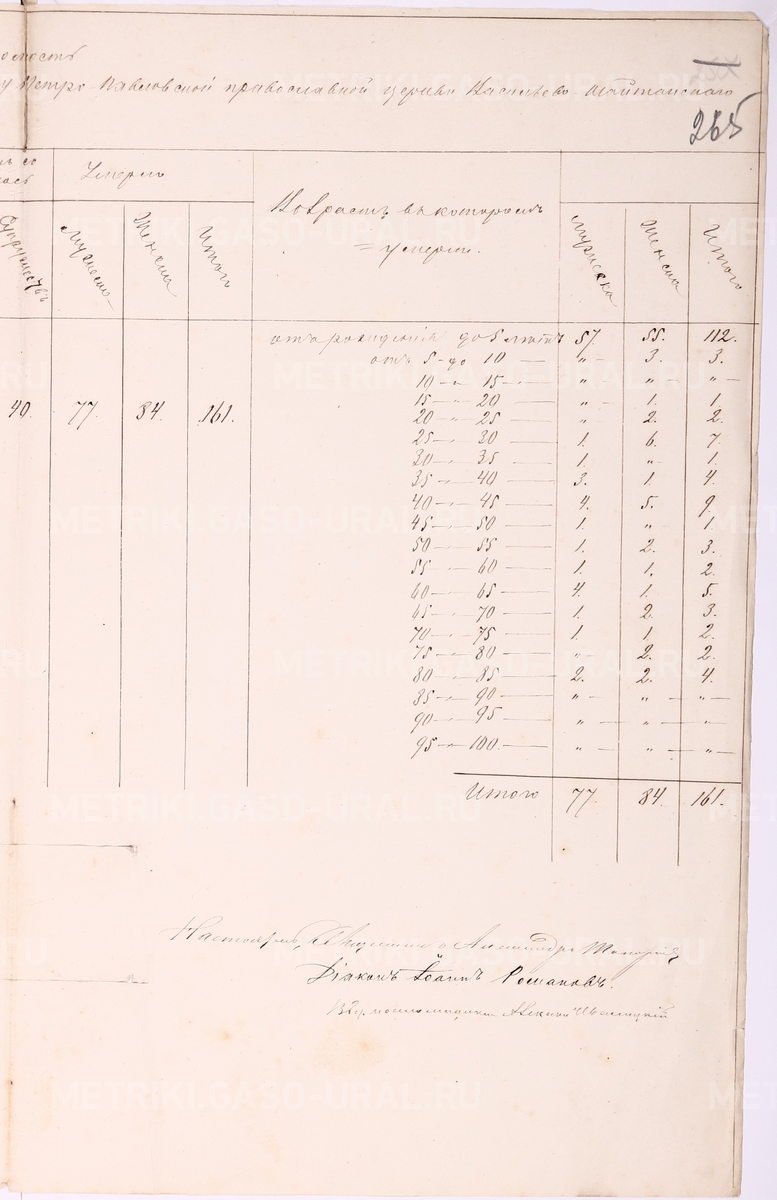 домость
Петро-Павловской православной церкви Васильево-Шайтанского
265
Умерло
Супружествъ
Мужеска
Женска
Итого
Возрастъ въ которомъ
умерли.
Мужеска
Женска
Итого
отъ рожденія до 5 лѣтъ 57. 55. 112.
отъ 5 - до 10 — „ - 3. 3.
10 - „ 15 — „ - „ - „ -
15 - „ 20 — „ - 1. 1.
40. 77. 84. 161.
20 - „ 25 — „ - 2. 2.
25 - „ 30 — 1. 6. 7.
30 - „ 35 — 1. „ - 1.
35 - „ 40 — 3. 1. 4.
40 - „ 45 — 4. 5. 9.
45 - „ 50 — 1. „ 1.
50 - „ 55 — 1. 2. 3.
55 - „ 60 — 1. 1. 2.
60 - „ 65 — 4. 1. 5.
65 - „ 70 — 1. 2. 3.
70 - „ 75 — 1. 1. 2.
75 - „ 80 — „ - 2. 2.
80 - „ 85 — 2. 2. 4.
85 - „ 90 — „ - „ - „ -
90 - „ 95 — „ - „ - „ -
95 - „ 100. — „ - „ - „ -
Итого 77. 84. 161.
Настоятель Священникъ Александръ
Діаконъ Іоаннъ Романовъ.
псаломщика
METRIKI.GASO-URAL.RU